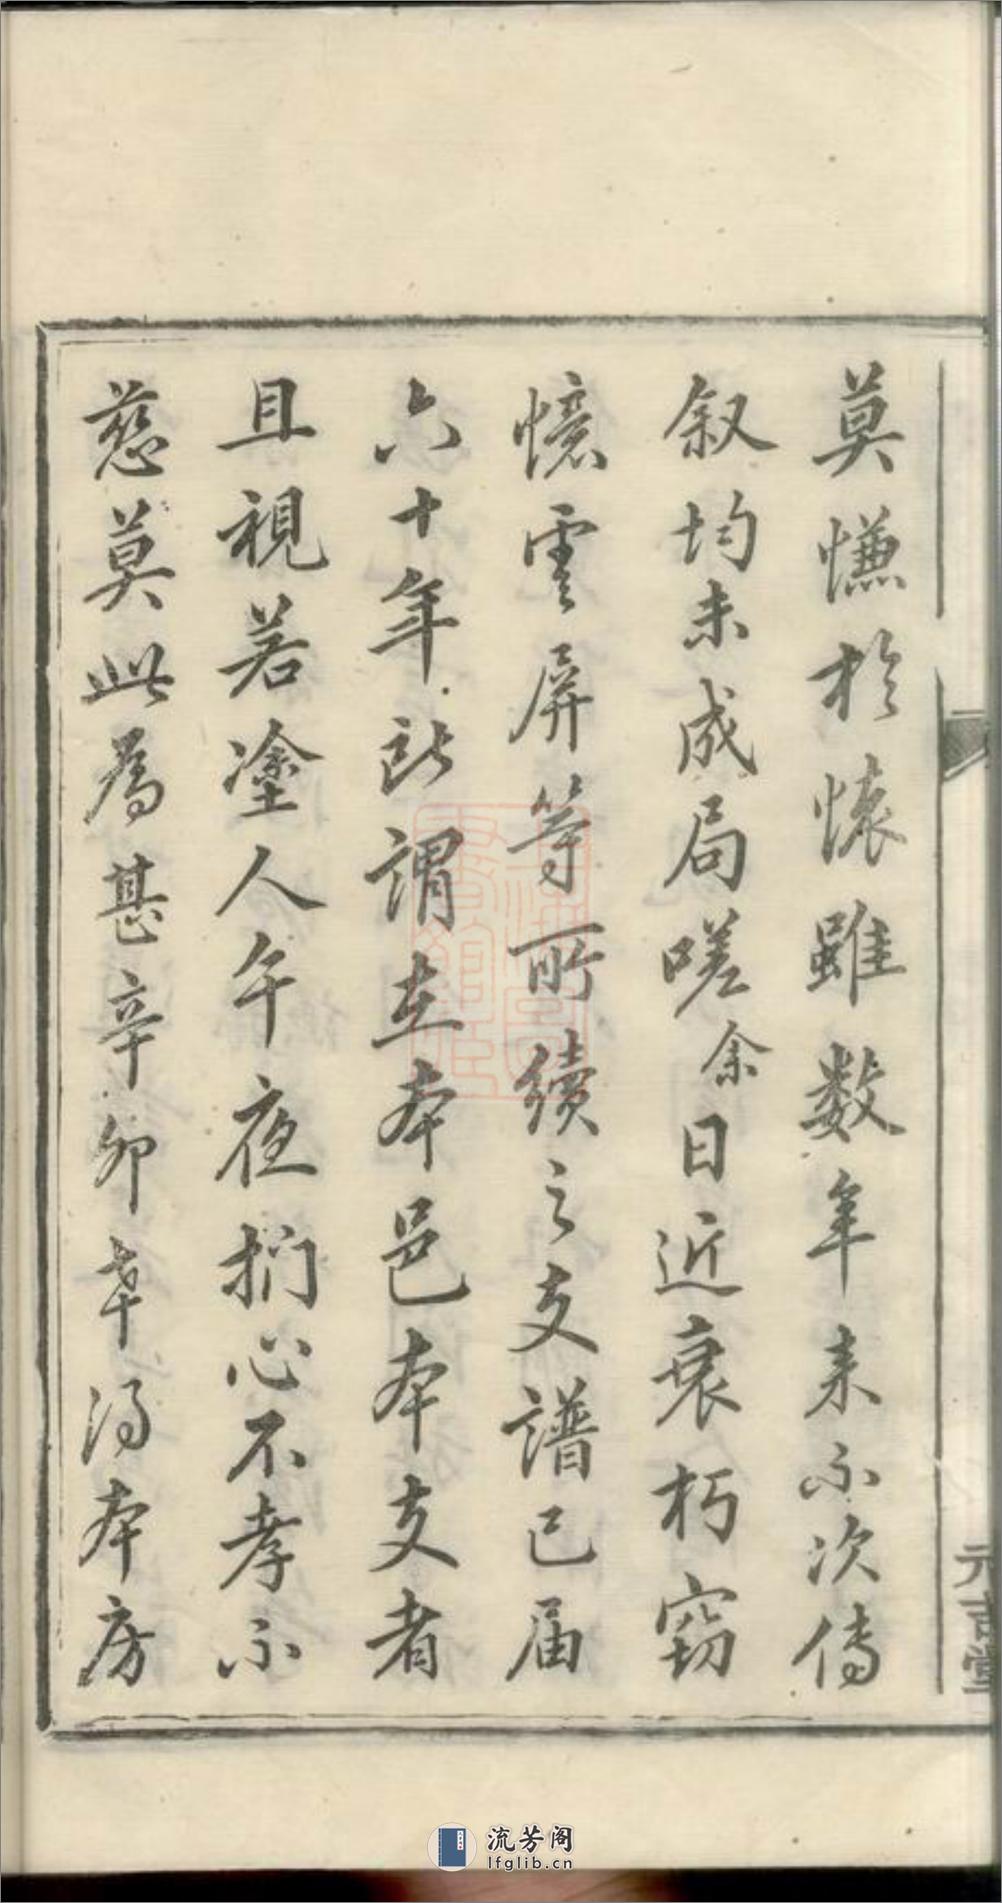 莫慊於懐雖数年来不次傳
叙均未成局嗟余日近衰朽竊
憶雲屏等所續之支譜已届
六十年所謂在本邑本支者
且視若塗人午夜捫心不孝不
慈莫此為甚辛卯幸得本房
元吉堂
流芳阁
lfglib.cn